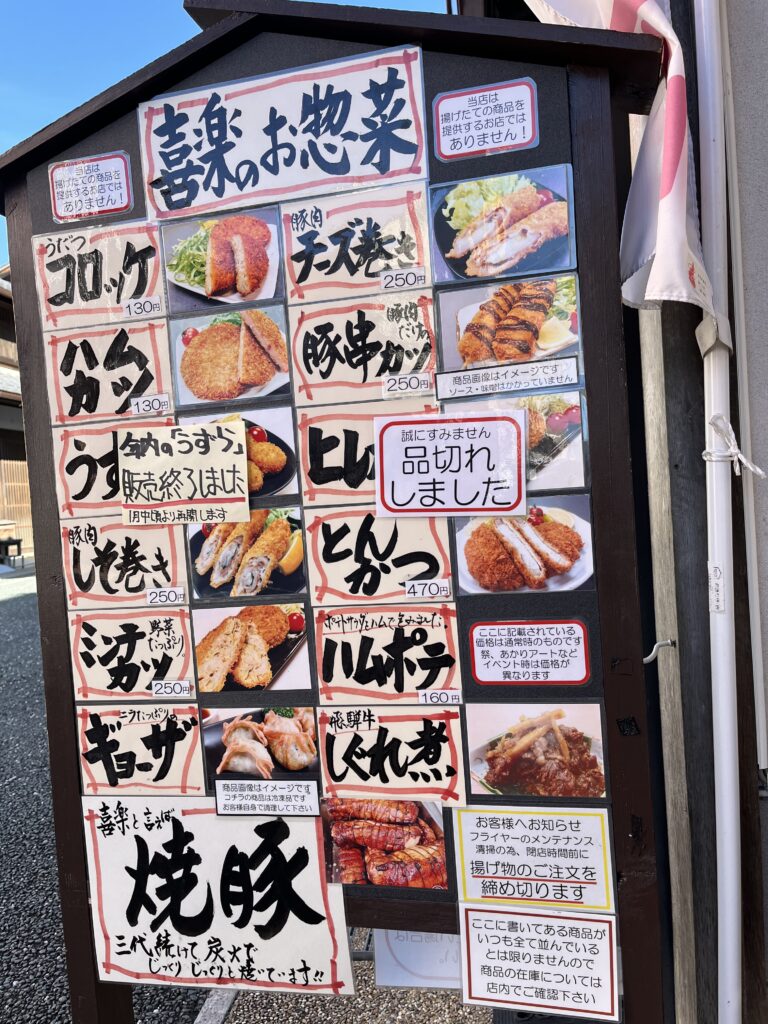 喜楽のお惣菜
当店は
揚げたての商品を
提供するお店では
ありません！
当店は
揚げたての商品を
提供するお店では
ありません！
うだつ
コロッケ
130円
豚肉
チーズ巻き
250円
ハム
カツ
130円
豚串カツ
豚肉
だけの
250円
商品画像はイメージです
ソース・味噌はかかっていません
うず
年内の「うずら」
販売終了しました
1月中頃より再開します
ヒレ
誠にすみません
品切れ
しました
豚肉
しそ巻き
250円
とん
かつ
470円
ミンチ
カツ
野菜
たっぷり。
250円
ポテトサラダをハムで包みました
ハムポテ
160円
ここに記載されている
価格は通常時のものです
祭、あかりアートなど
イベント時は価格が
異なります
ニラたっぷりの
ギョーザ
商品画像はイメージです
コチラの商品は冷凍品です
お客様自身で調理して下さい
飛騨牛
しぐれ煮
喜楽と言えば
焼豚
三代続けて炭火で
じっくりじっくりと焼いています!!
お客様へお知らせ
フライヤーのメンテナンス
清掃の為、閉店時間前に
揚げ物のご注文を
締め切ります
ここに書いてある商品が
いつも全て並んでいる
とは限りませんので
商品の在庫については
店内でご確認下さい